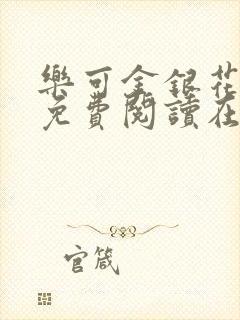 樂可金銀花
免費閱讀在
官箴